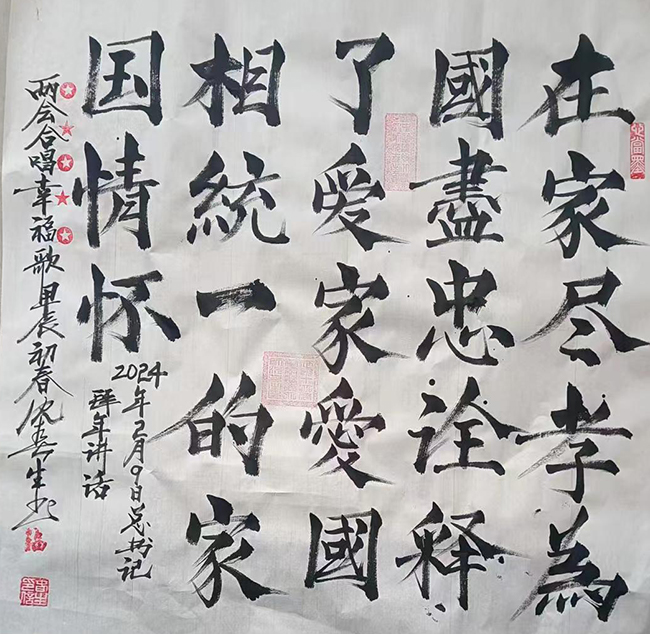 在家尽孝為
國盡忠诠释
了爱家愛國
相統一的家
国情怀
2024年2月9日总书记
拜年讲话
两会合唱幸福歌甲辰初春沈春生书
福